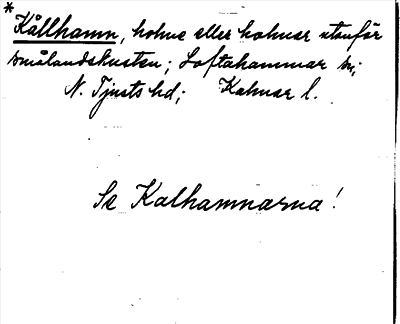 *
Kållhamn, holme eller holmar utanför
smålandskusten; Loftahammar sn;
N. Tjusts hd; Kalmar l.
Se Kalhamnarna!